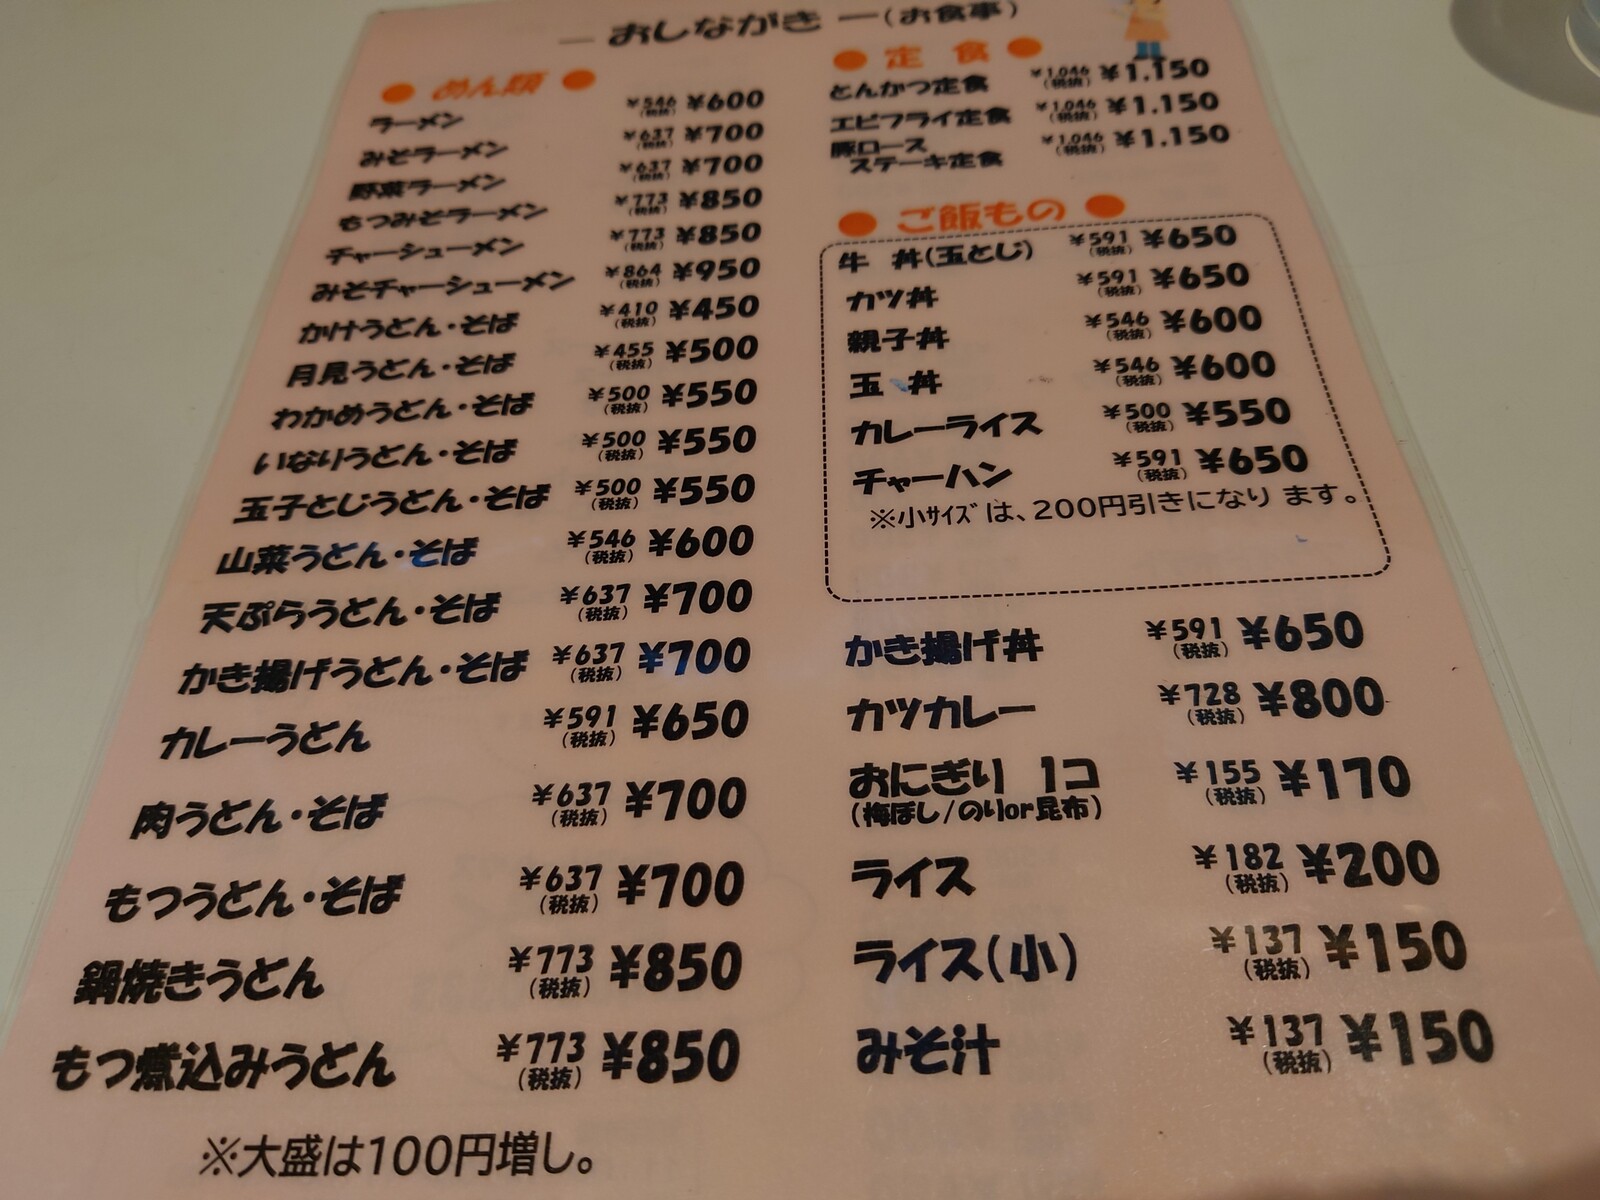 ― おしながき ―(お食事)
● めん類 ●
ラーメン ¥546(税抜) ¥600
みそラーメン ¥637(税抜) ¥700
野菜ラーメン ¥637(税抜) ¥700
もつみそラーメン ¥773(税抜) ¥850
チャーシューメン ¥773(税抜) ¥850
みそチャーシューメン ¥864(税抜) ¥950
かけうどん・そば ¥410(税抜) ¥450
月見うどん・そば ¥455(税抜) ¥500
わかめうどん・そば ¥500(税抜) ¥550
いなりうどん・そば ¥500(税抜) ¥550
玉子とじうどん・そば ¥500(税抜) ¥550
山菜うどん・そば ¥546(税抜) ¥600
天ぷらうどん・そば ¥637(税抜) ¥700
かき揚げうどん・そば ¥637(税抜) ¥700
カレーうどん ¥591(税抜) ¥650
肉うどん・そば ¥637(税抜) ¥700
もつうどん・そば ¥637(税抜) ¥700
鍋焼きうどん ¥773(税抜) ¥850
もつ煮込みうどん ¥773(税抜) ¥850
※大盛は100円増し。
● 定食 ●
とんかつ定食 ¥1,046(税抜) ¥1.150
エビフライ定食 ¥1,046(税抜) ¥1.150
豚ロース
ステーキ定食 ¥1,046(税抜) ¥1.150
● ご飯もの ●
牛 丼(玉とじ) ¥591(税抜) ¥650
カツ丼 ¥591(税抜) ¥650
親子丼 ¥546(税抜) ¥600
玉 丼 ¥546(税抜) ¥600
カレーライス ¥500(税抜) ¥550
チャーハン ¥591(税抜) ¥650
※小ｻｲｽﾞは、200円引きになり ます。
かき揚げ丼 ¥591(税抜) ¥650
カツカレー ¥728(税抜) ¥800
おにぎり 1コ ¥155(税抜) ¥170
(梅ぼし/のりor昆布)
ライス ¥182(税抜) ¥200
ライス(小) ¥137(税抜) ¥150
みそ汁 ¥137(税抜) ¥150